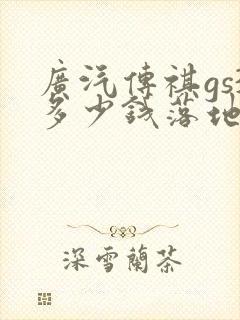 廣汽傳祺gs
多少錢落地
深雪蘭茶